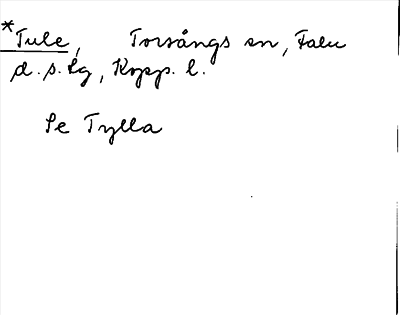 *Tule, Torsångs sn, Falu
d. s. lg, Kopp. l.
Se Tylla